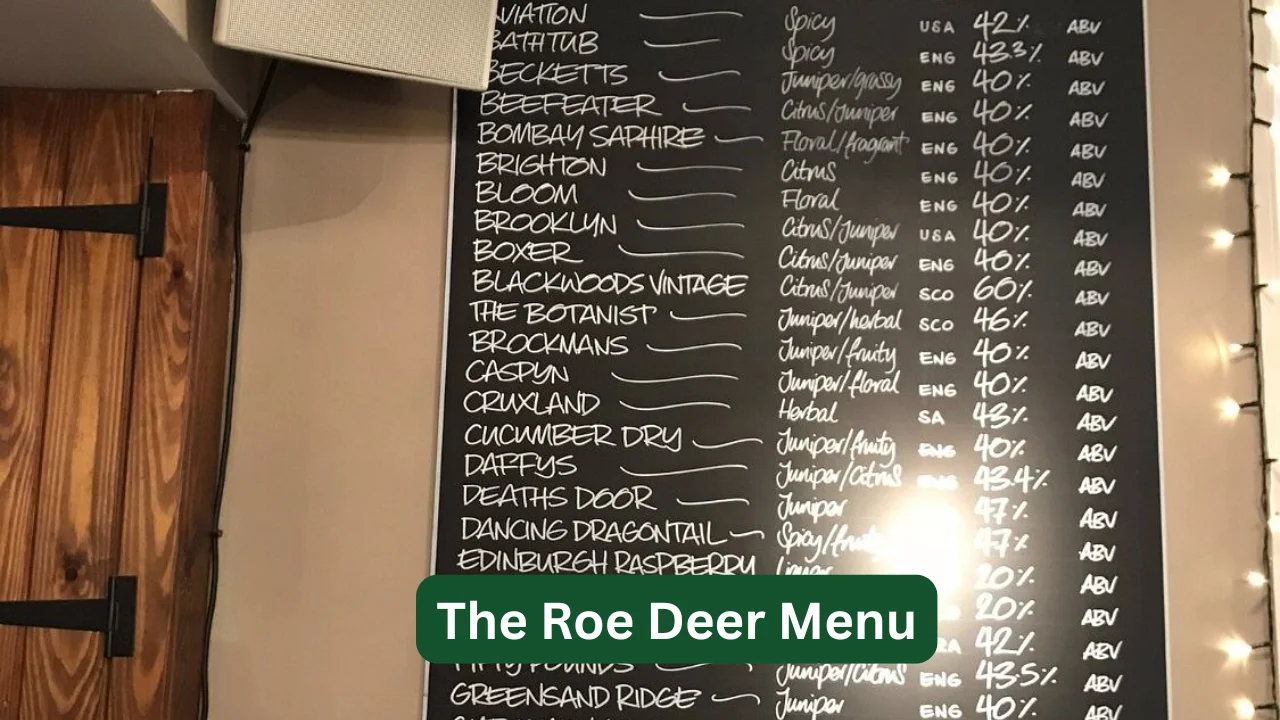 AVIATION Spicy USA 42% ABV
BATHTUB Spicy ENG 43.3% ABV
BECKETTS Juniper/grassy ENG 40% ABV
BEEFEATER Citrus/Juniper ENG 40% ABV
BOMBAY SAPHIRE Floral/fragrant ENG 40% ABV
BRIGHTON Citrus ENG 40% ABV
BLOOM Floral ENG 40% ABV
BROOKLYN Citrus/Juniper USA 40% ABV
BOXER Citrus/Juniper ENG 40% ABV
BLACKWOODS VINTAGE Citrus/Juniper SCO 60% ABV
THE BOTANIST Juniper/herbal SCO 46% ABV
BROCKMANS Juniper/fruity ENG 40% ABV
CASPYN Juniper/floral ENG 40% ABV
CRUXLAND Herbal SA 43% ABV
CUCUMBER DRY Juniper/fruity ENG 40% ABV
DAFFYS Juniper/Citrus ENG 43.4% ABV
DEATHS DOOR Juniper 47% ABV
DANCING DRAGONTAIL Spicy/fruity 47% ABV
EDINBURGH RASPBERRY Liqueur 20% ABV
20% ABV
The Roe Deer Menu
42% ABV
FIFTY POUNDS Juniper/Citrus ENG 43.5% ABV
GREENSAND RIDGE Juniper ENG 40% ABV